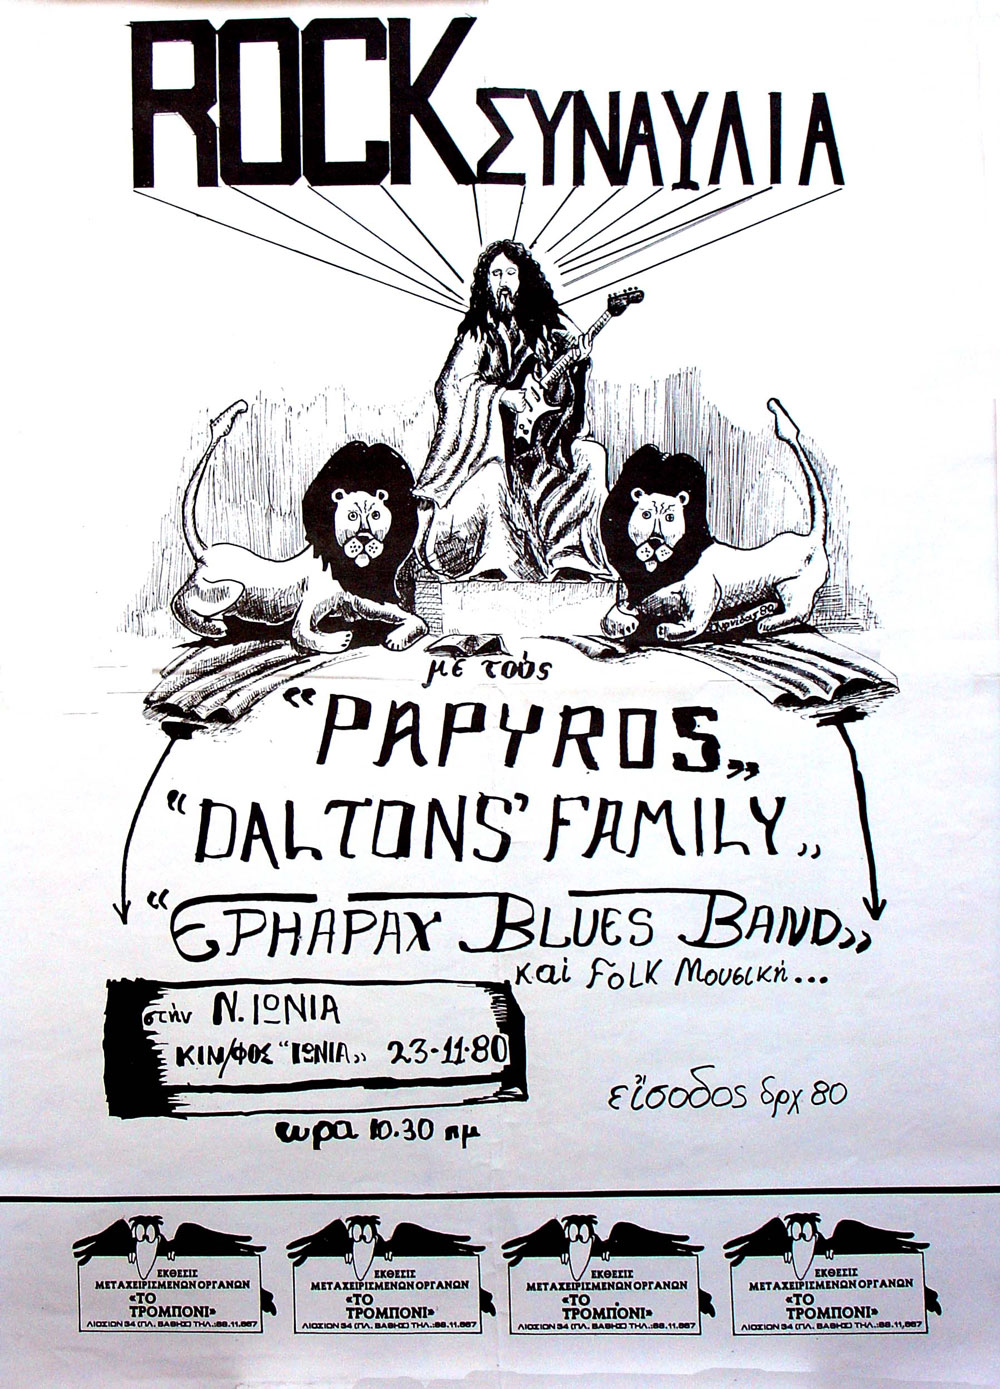 ROCK ΣΥΝΑΥΛΙΑ
μέ τούς
“PAPYROS„
“DALTONS' FAMILY„
“EPHAPAX BLUES BAND»
καί FOLK Μουσική...
στήν Ν. ΙΩΝΙΑ
ΚΙΝ/ΦΟΣ “ΙΩΝΙΑ» 23-11-80
ώρα 10.30 πμ
εἴσοδος δρχ 80
ΕΚΘΕΣΙΣ
ΜΕΤΑΧΕΙΡΙΣΜΕΝΩΝ ΟΡΓΑΝΩΝ
«ΤΟ
ΤΡΟΜΠΟΝΙ»
ΛΙΟΣΙΩΝ 34 (ΠΛ. ΒΑΘΗΣ) ΤΗΛ.:88.11.867
ΕΚΘΕΣΙΣ
ΜΕΤΑΧΕΙΡΙΣΜΕΝΩΝ ΟΡΓΑΝΩΝ
«ΤΟ
ΤΡΟΜΠΟΝΙ»
ΛΙΟΣΙΩΝ 34 (ΠΛ. ΒΑΘΗΣ) ΤΗΛ.:88.11.867
ΕΚΘΕΣΙΣ
ΜΕΤΑΧΕΙΡΙΣΜΕΝΩΝ ΟΡΓΑΝΩΝ
«ΤΟ
ΤΡΟΜΠΟΝΙ»
ΛΙΟΣΙΩΝ 34 (ΠΛ. ΒΑΘΗΣ) ΤΗΛ.:88.11.867
ΕΚΘΕΣΙΣ
ΜΕΤΑΧΕΙΡΙΣΜΕΝΩΝ ΟΡΓΑΝΩΝ
«ΤΟ
ΤΡΟΜΠΟΝΙ»
ΛΙΟΣΙΩΝ 34 (ΠΛ. ΒΑΘΗΣ) ΤΗΛ.:88.11.867